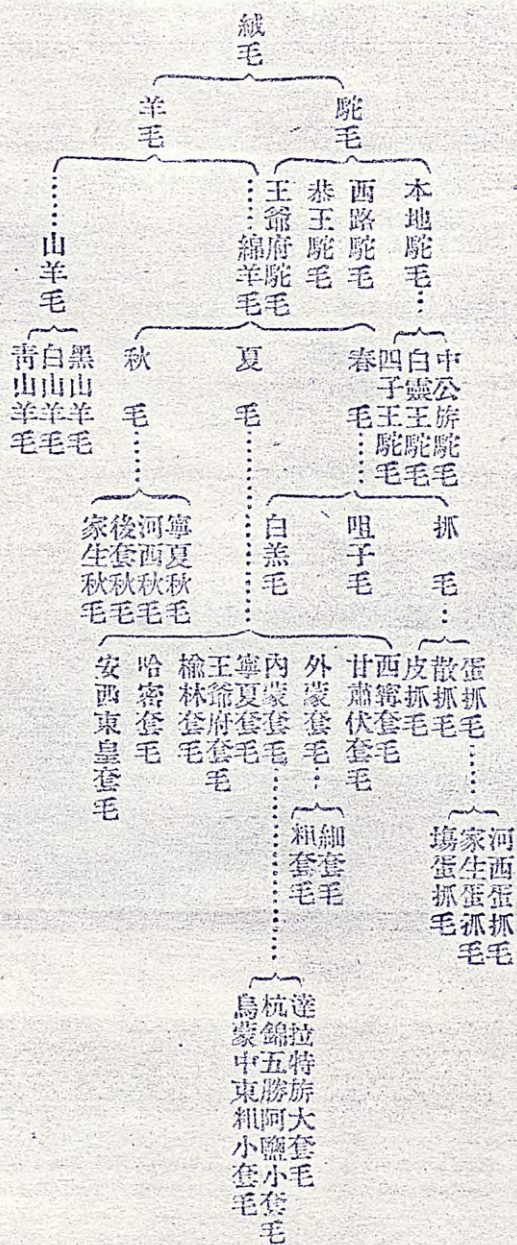 絨毛
駝毛
羊毛
本地駝毛
西路駝毛
恭王駝毛
王爺府駝毛
綿羊毛
山羊毛
中公旂駝毛
白靈王駝毛
四子王駝毛
春毛
夏毛
秋毛
黑山羊毛
白山羊毛
青山羊毛
抓毛
咀子毛
白羔毛
寧夏秋毛
河西秋毛
後套秋毛
家生秋毛
蛋抓毛
散抓毛
皮抓毛
西寗套毛
甘肅伏套毛
外蒙套毛
內蒙套毛
寧夏套毛
王爺府套毛
榆林套毛
哈密套毛
安西東皇套毛
河西蛋抓毛
家生蛋抓毛
塲蛋抓毛
細套毛
粗套毛
達拉特旂大套毛
杭錦五勝阿鹽小套毛
烏蒙中東粗小套毛